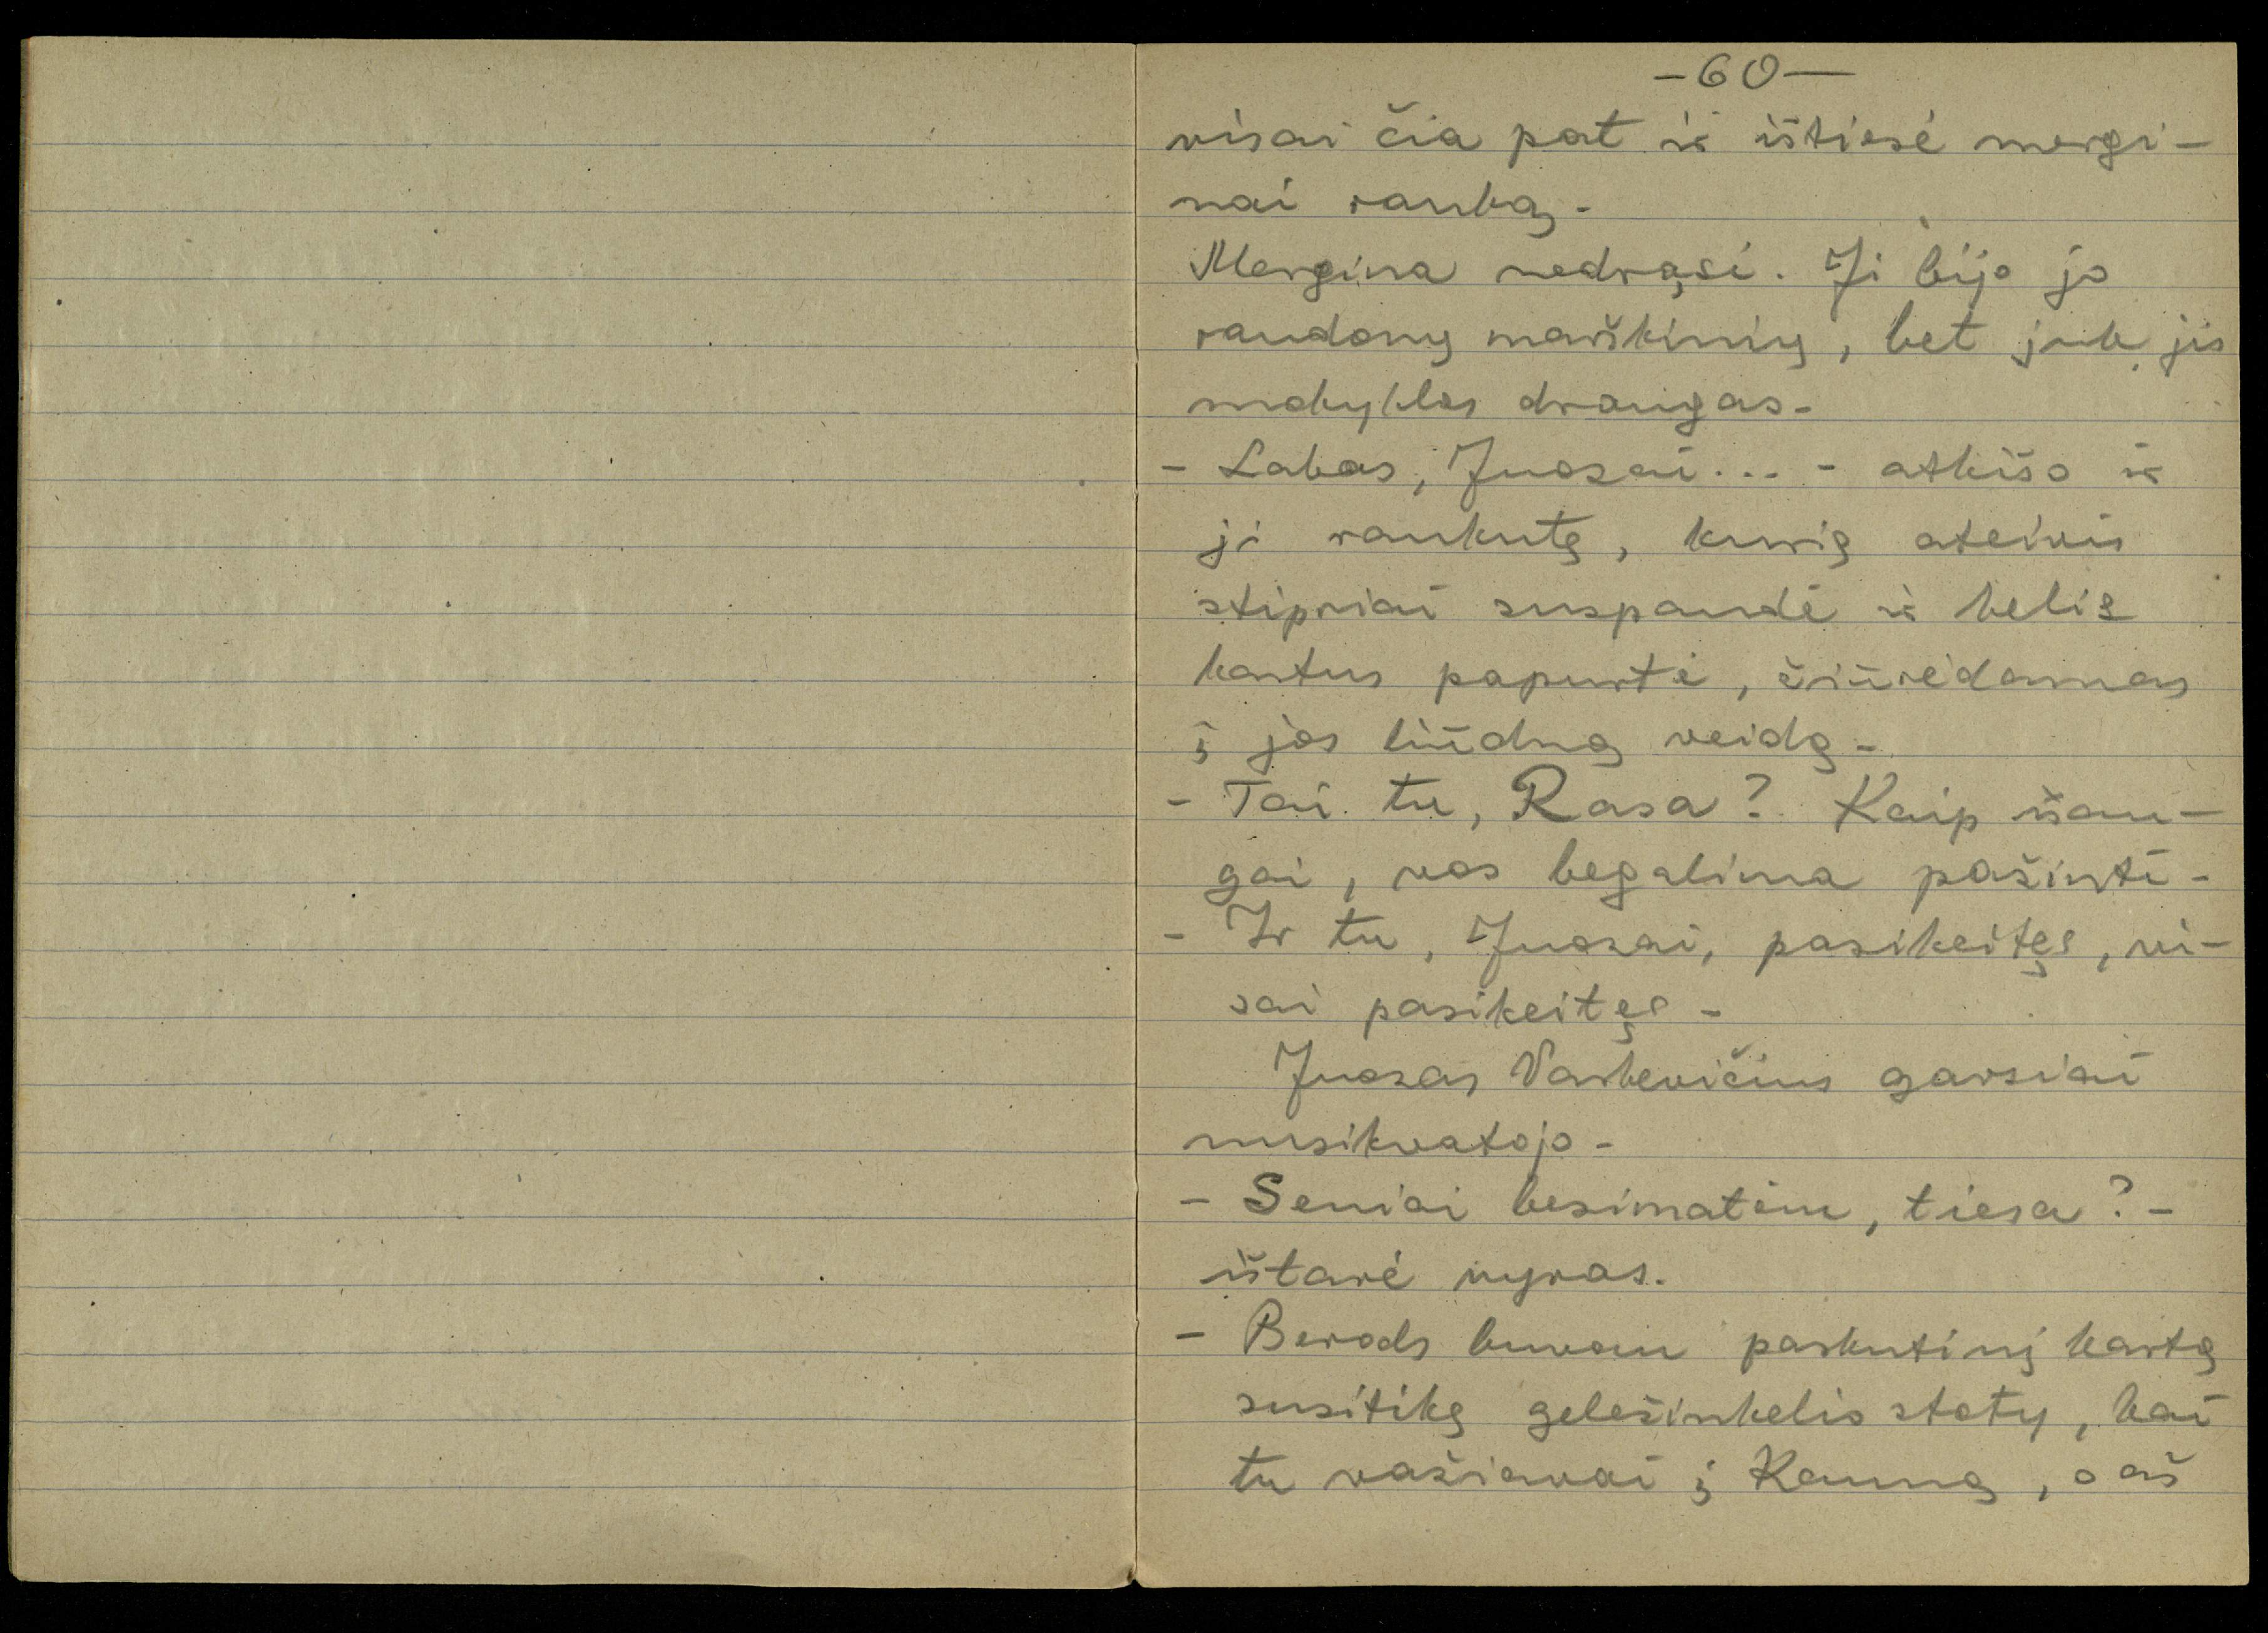 -60-
visai čia pat ir ištiesė mergi-
nai ranką.
Mergina nedrąsi. Ji bijo jo
raudonų marškinių, bet juk jis
mokyklos draugas.
- Labas, Juozai... - atkišo ir
ji rankutę, kurią ateivis
stipriai suspaudė ir kelis
kartus papurtė, žiūrėdamas
į jos liūdną veidą.
- Tai tu, Rasa? Kaip išau-
gai, vos begalima pažinti.
- Ir tu, Juozai, pasikeitęs, vi-
sai pasikeitęs.
Juozas Varkevičius garsiai
nusikvatojo.
- Seniai besimatėm, tiesa? -
ištarė vyras.
- Berods buvau paskutinį kartą
susitikę geležinkelio stoty, kai
tu važiavai į Kauną, o aš